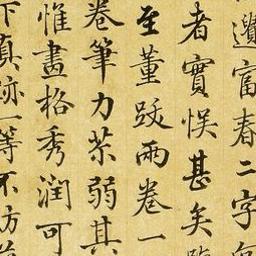 富春二字
者實悞甚矣
至董跋兩卷一
卷筆力苶弱其
惟畫格秀潤可
下真跡一等不妨